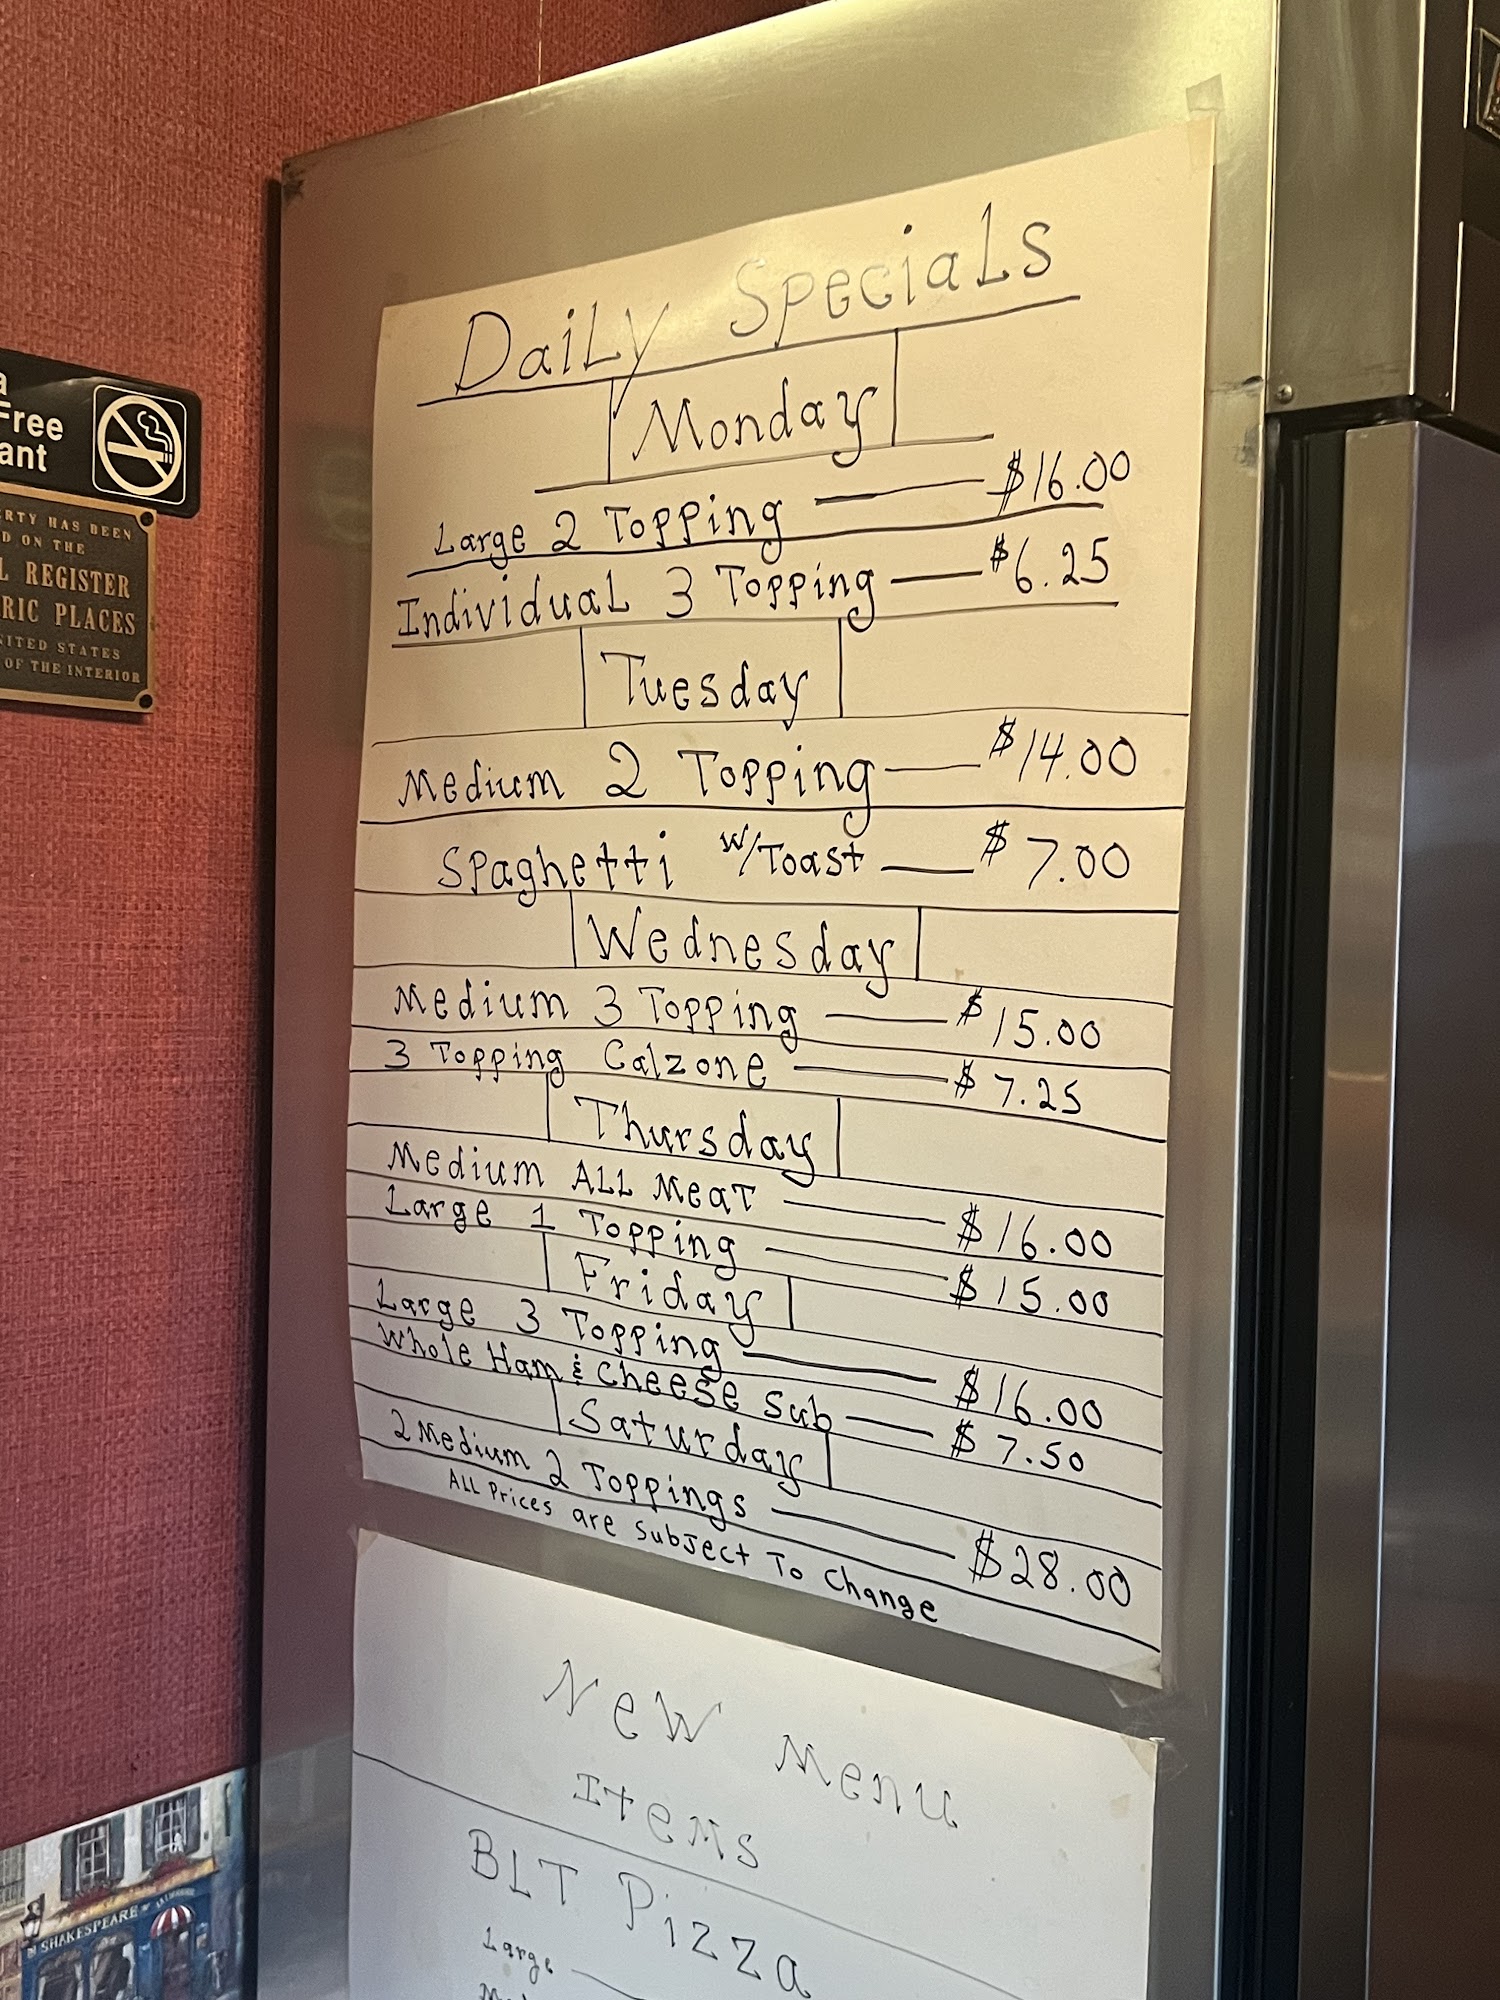 Daily Specials
Monday
Large 2 Topping $16.00
Individual 3 Topping $6.25
Tuesday
Medium 2 Topping $14.00
Spaghetti w/Toast $7.00
Wednesday
Medium 3 Topping $15.00
3 Topping Calzone $7.25
Thursday
Medium ALL Meat $16.00
Large 1 Topping $15.00
Friday
Large 3 Topping $16.00
Whole Ham & Cheese Sub $7.50
Saturday
2 Medium 2 Toppings $28.00
ALL Prices are Subject To Change
New Menu
Items
BLT Pizza
Large
a
Free
ant
ERTY HAS BEEN
D ON THE
L REGISTER
RIC PLACES
NITED STATES
OF THE INTERIOR
SHAKESPEARE